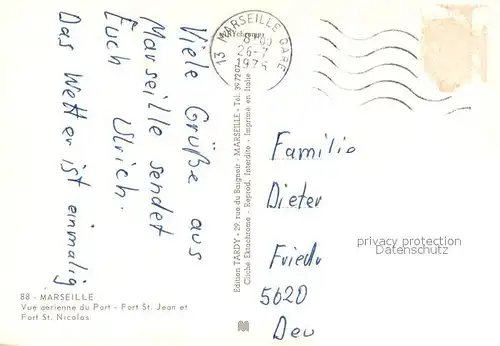 Viele Grüße aus
Marseille sendet
Euch Ulrich.
Das Wetter ist einmalig
13 MARSEILLE GARE
26-7
Edition TARDY - 29, rue du Baignoir - MARSEILLE - Tél. 39 72 07
Cliché Ektachrome - Reprod. Interdite - Imprimé en Italie
Familie
Dieter
Friedr
5620
privacy protection
Datenschutz
88 - MARSEILLE
Vue aérienne du Port - Fort St. Jean et
Fort St. Nicolas